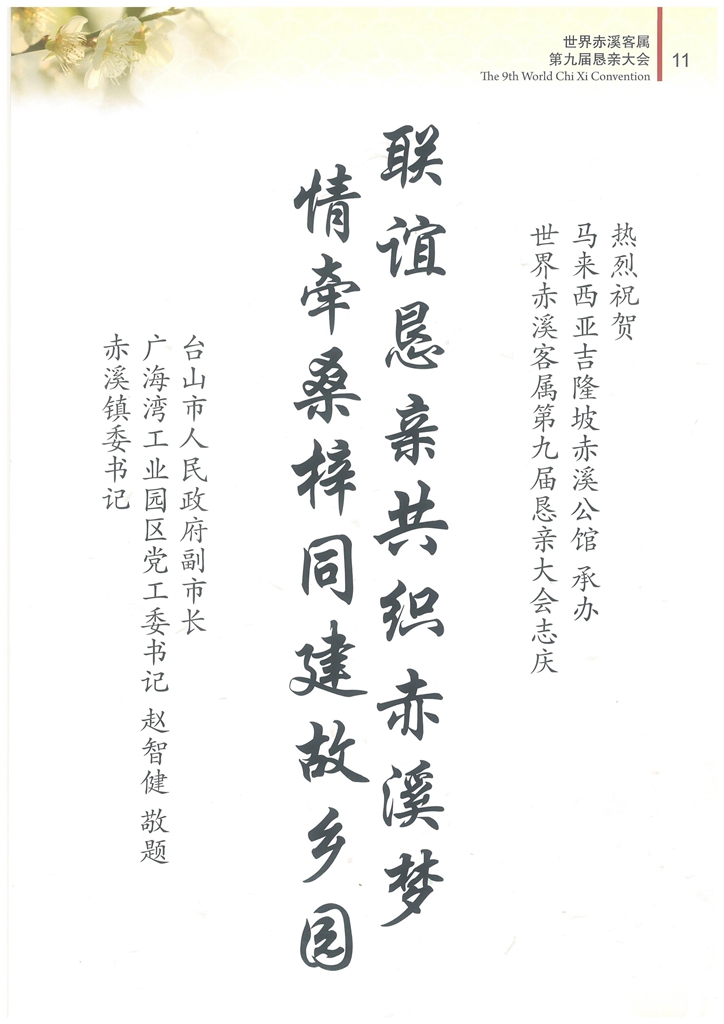 世界赤溪客属
第九届恳亲大会
The 9th World Chi Xi Convention
11
热烈祝贺
马来西亚吉隆坡赤溪公馆 承办
世界赤溪客属第九届恳亲大会志庆
联谊恳亲共织赤溪梦
情牵桑梓同建故乡园
台山市人民政府副市长
广海湾工业园区党工委书记 赵智健 敬题
赤溪镇委书记